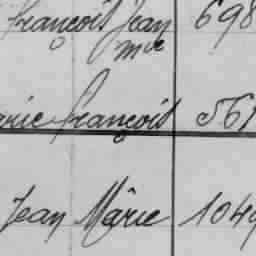 françois Jean 698
mie
arie françois 561
Jean Mârie 1049